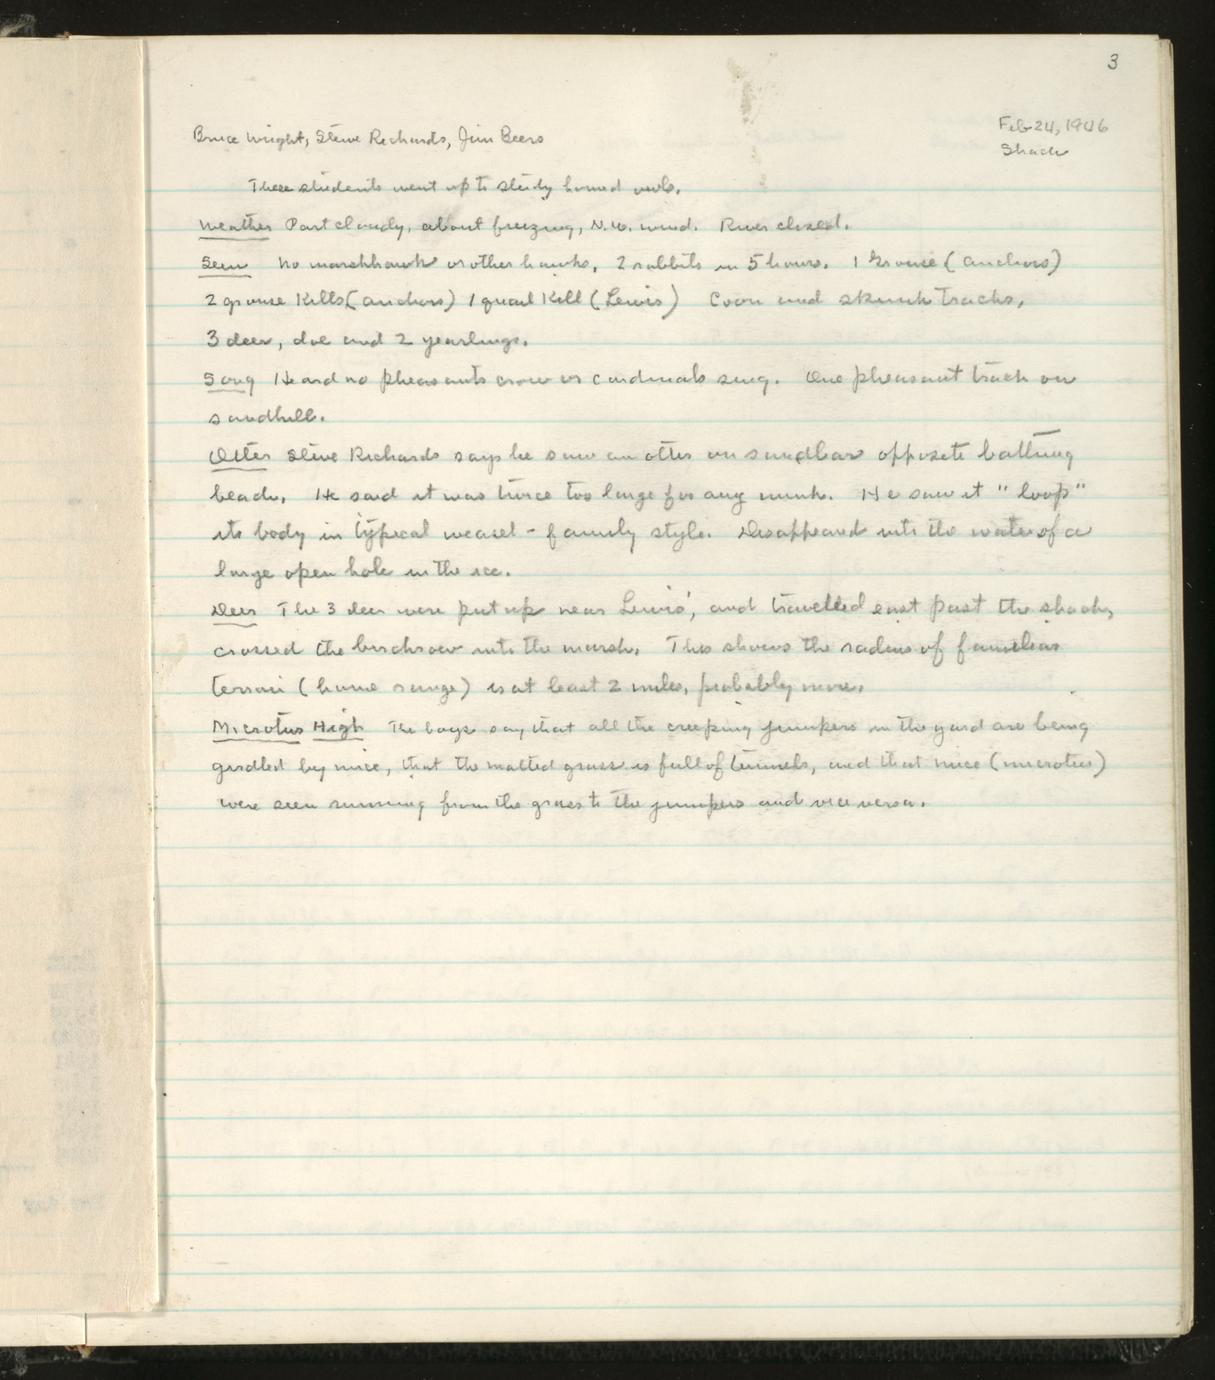 3
Feb 24, 1946
Bruce Wright, Steve Richards, Jim Beers
Shack
These students went up to study horned owls.
Weather Part cloudy, about freezing, N.W. wind. River closed.
Seen No marshhawk or other hawks. 2 rabbits in 5 hours. 1 Grouse (Anchors)
2 grouse kills (Anchors) 1 quail kill (Lewis) Coon and skunk tracks,
3 deer, doe and 2 yearlings.
Song Heard no pheasants crow or cardinals sing. One pheasant track on
sandhill.
Otter Steve Richards says he saw an otter on sandbar opposite bathing
beach. He said it was twice too large for any mink. He saw it "loop"
its body in typical weasel-family style. Disappeared into the water of a
large open hole in the ice.
Deer The 3 deer were put up near Lewis', and travelled east past the shack,
crossed the birchrow into the marsh. This shows the radius of familiar
terrain (home range) is at least 2 miles, probably more.
Microtus High The boys say that all the creeping junipers in the yard are being
girdled by mice, that the matted grass is full of tunnels, and that mice (microtus)
were seen running from the grass to the junipers and vice versa.